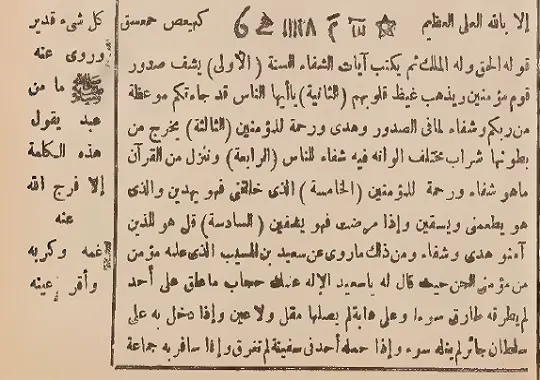 إلا بالله العلي العظيم كهيعص حمعسق
قوله الحق وله الملك ثم يكتب آيات الشفاء الستة (الأولى) يشف صدور
قوم مؤمنين ويذهب غيظ قلوبهم (الثانية) ياأيها الناس قد جاءتكم موعظة
من ربكم وشفاء لمافى الصدور وهدى ورحمة للمؤمنين (الثالثة) يخرج من
بطونها شراب مختلف الوانه فيه شفاء للناس (الرابعة) وننزل من القرآن
ماهو شفاء ورحمة للمؤمنين (الخامسة) الذى خلقنى فهو يهدين والذى
هو يطعمنى ويسقين وإذا مرضت فهو يشفين (السادسة) قل هو للذين
آمنو هدى وشفاء ومن ذلك ماروى عن سعيد بن المسيب الذى علمه مؤمن
من مؤمنى الجن حيث قال له ياسعيد الإله عنك حجاب ماعلق على أحد
لم يطرقه طارق سوءا وعلى دابة لم يصلها مقل ولا عين وإذا دخل به على
سلطان جائر لم ينله سوء وإذا حمله أحد فى سفينة لم تغرق وإذا سافر به جماعة
كل شىء قدير
وروى عنه
ﷺ ما من
عبد يقول
هذه الكلمة
إلا فرج الله
عنه
غمه وكربه
وأقر عينه